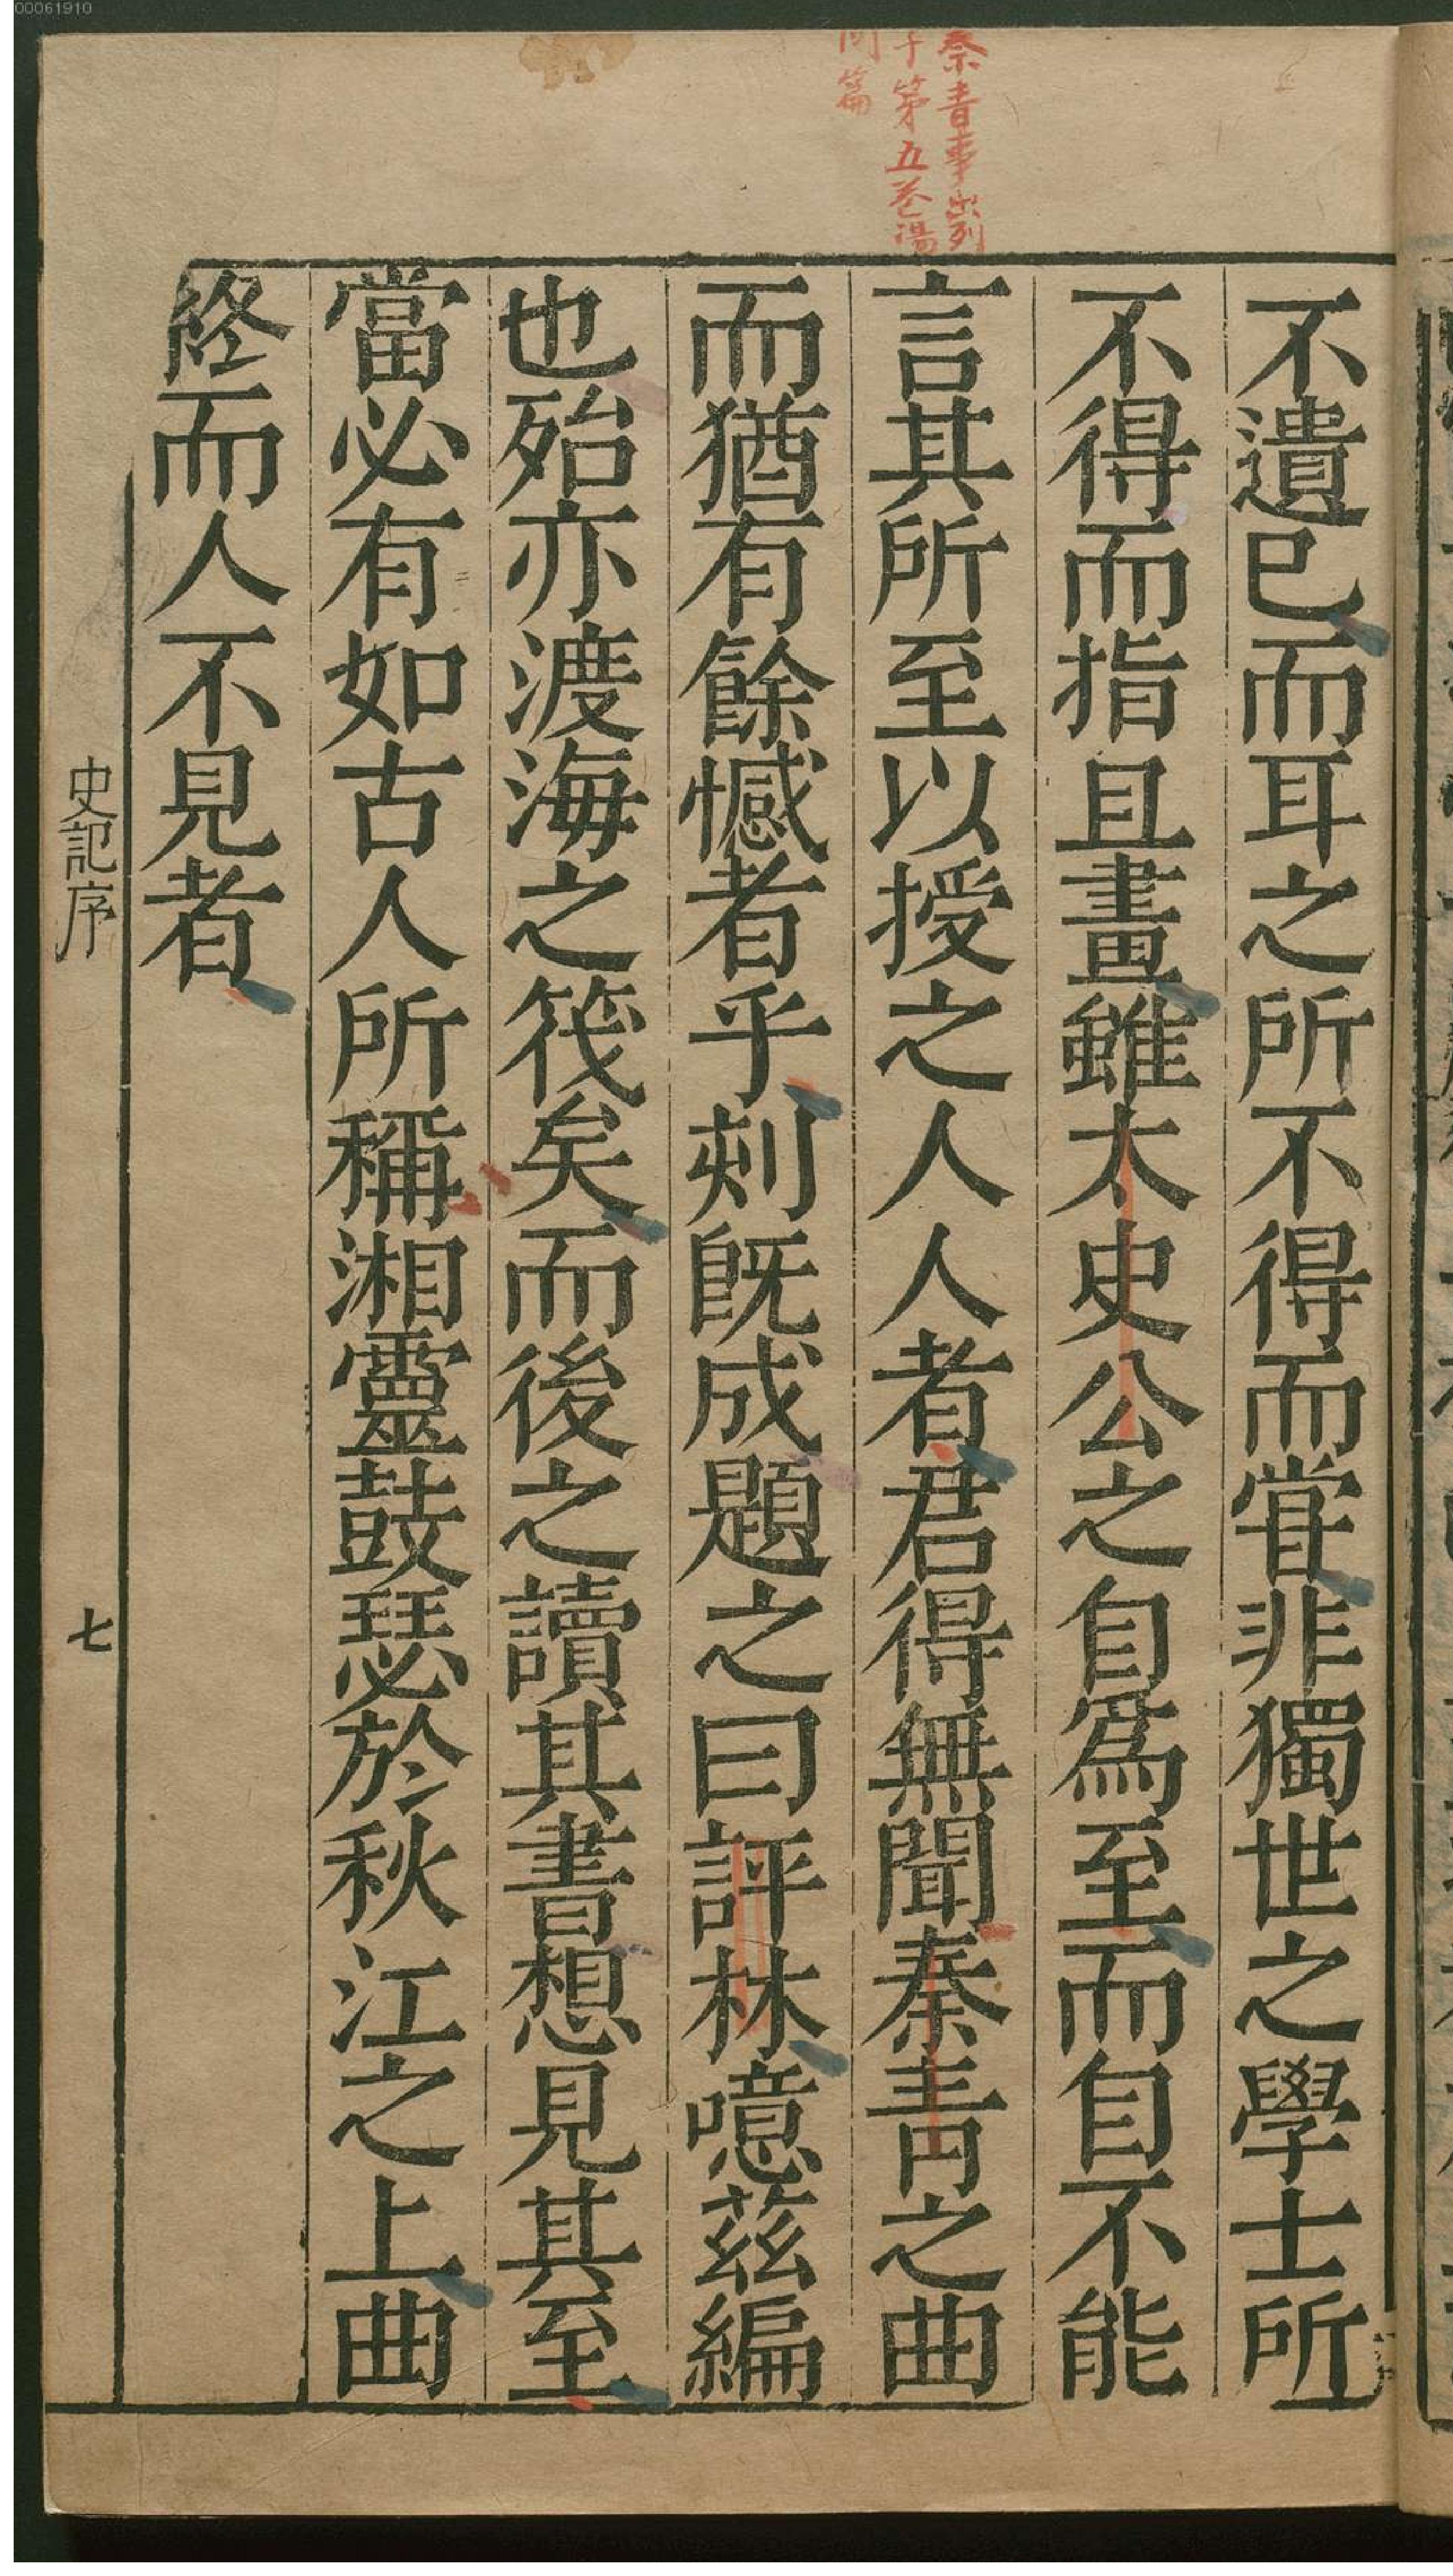 00061910
秦青事出列
子第五卷湯
問篇
不遺已而耳之所不得而甞非獨世之學士所
不得而指且畫雖太史公之自爲至而自不能
言其所至以授之人人者君得無聞秦青之曲
而猶有餘憾者乎刻旣成題之曰評林噫茲編
也殆亦渡海之筏矣而後之讀其書想見其至
當必有如古人所稱湘靈鼓瑟於秋江之上曲
終而人不見者
史記序
七